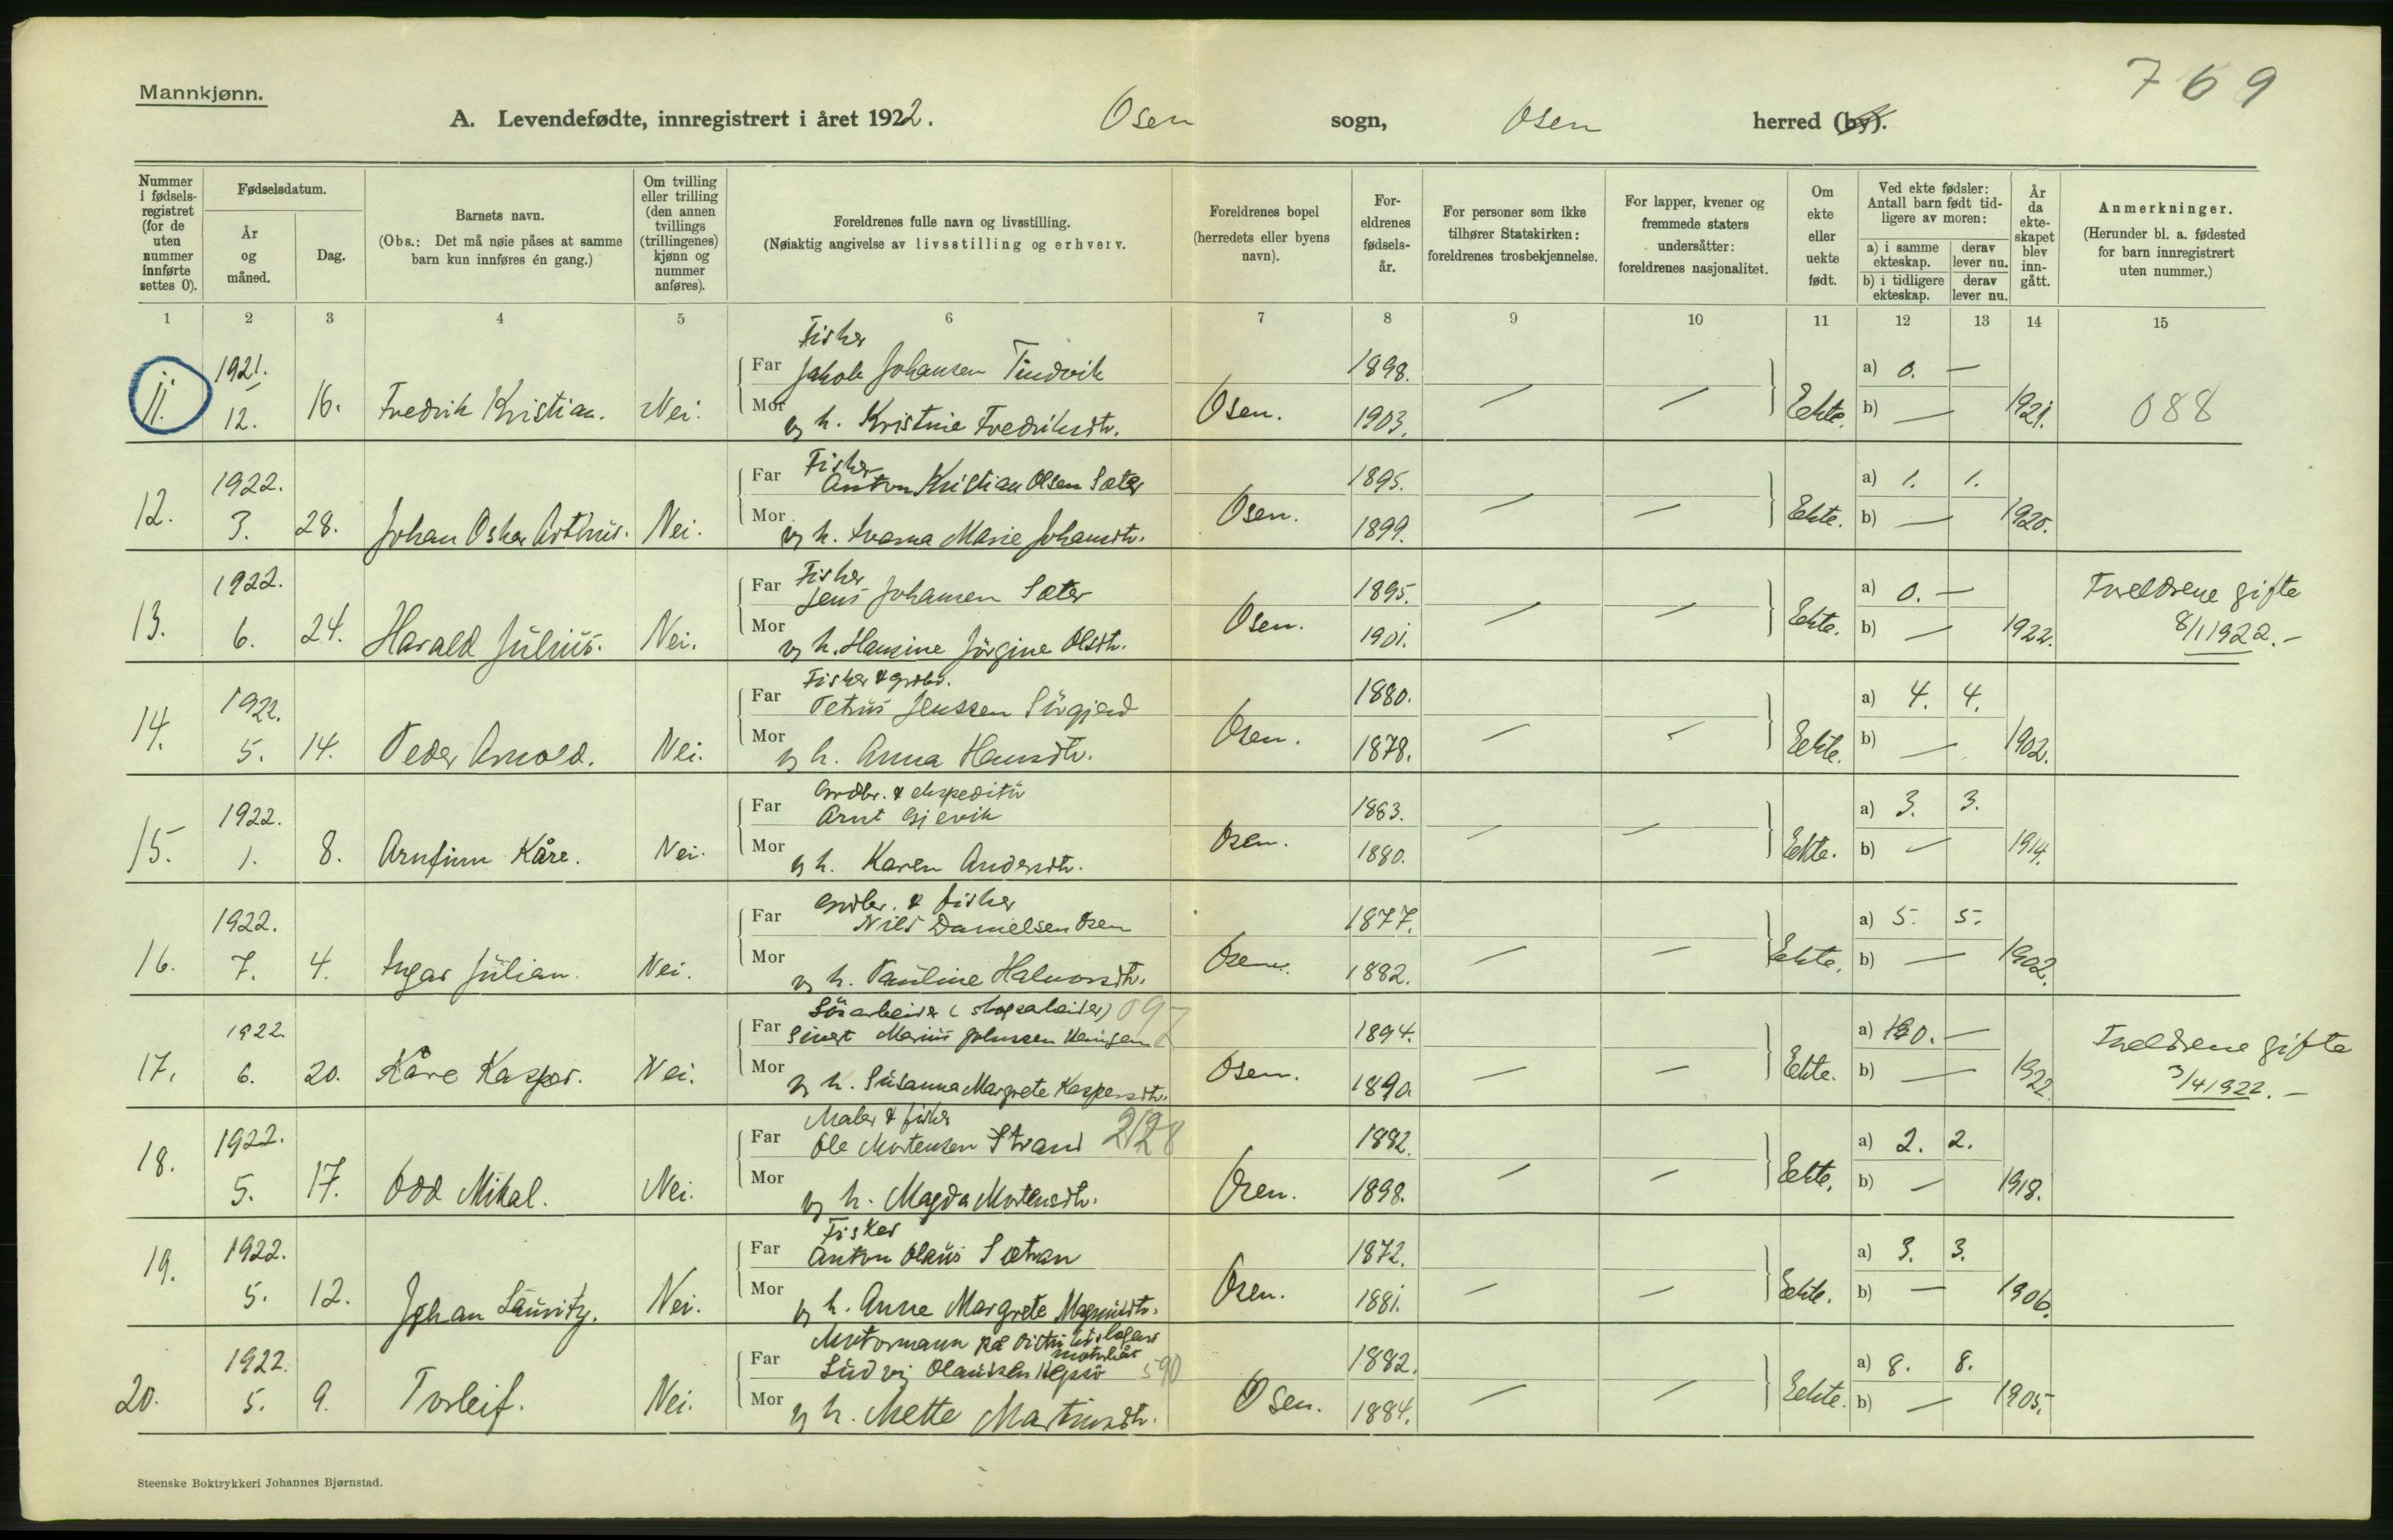 769
Mannkjønn.
A. Levendefødte, innregistrert i året 1922. Osen sogn, Osen herred (by).
Nummer i fødselsregistret (for de uten nummer innførte settes 0).
Fødselsdatum.
År og måned.
Dag.
Barnets navn.
(Obs.: Det må nøie påses at samme barn kun innføres én gang.)
Om tvilling eller trilling (den annen tvillings (trillingenes) kjønn og nummer anføres).
Foreldrenes fulle navn og livsstilling.
(Nøiaktig angivelse av livsstilling og erhverv.
Foreldrenes bopel (herredets eller byens navn).
Foreldrenes fødselsår.
For personer som ikke tilhører Statskirken: foreldrenes trosbekjennelse.
For lapper, kvener og fremmede staters undersåtter: foreldrenes nasjonalitet.
Om ekte eller uekte født.
Ved ekte fødsler: Antall barn født tidligere av moren:
a) i samme ekteskap.
derav lever nu.
b) i tidligere ekteskap.
derav lever nu.
År da ekteskapet blev inngått.
Anmerkninger.
(Herunder bl. a. fødested for barn innregistrert uten nummer.)
1 2 3 4 5 6 7 8 9 10 11 12 13 14 15
Fisker
11. 1921. 12. 16. Fredrik Kristian. Nei.
Far Jakob Johansen Tindvik 1898. a) 0. —
Mor og h. Kristine Fredriksdtr. Osen. 1903. — — Eekte. b) — 1921. 088
Fisker
12. 1922. 3. 28. Johan Oskar Arthur. Nei.
Far Anton Kristian Olsen Sæter 1895. a) 1. 1.
Mor og h. Ivarna Marie Johansdtr. Osen. 1899. — — Eekte. b) — 1920.
Fisker
13. 1922. 6. 24. Harald Julius. Nei.
Far Jens Johansen Sæter 1895. a) 0. — Foreldrene gifte
Mor og h. Hansine Jørgine Olsdtr. Osen. 1901. — — Eekte. b) — 1922. 8/1 1922. —
Fisker & grdbr.
14. 1922. 5. 14. Peder Arnold. Nei.
Far Petrus Jenssen Sørgjerd 1880. a) 4. 4.
Mor og h. Anna Hansdtr. Osen. 1878. — — Eekte. b) — 1902.
Grdbr. & ekspeditør
15. 1922. 1. 8. Arnfinn Kåre. Nei.
Far Arnt Gjevik 1883. a) 3. 3.
Mor og h. Karen Andersdtr. Osen. 1880. — — Eekte. b) — 1914.
Grdbr. & fisker
16. 1922. 7. 4. Ingar Julian. Nei.
Far Nils Danielsen Osen 1877. a) 5. 5.
Mor og h. Pauline Halvorsdtr. Osen. 1882. — — Eekte. b) — 1902.
Løsarbeider (skogsarbeider) 097
17. 1922 6. 20. Kåre Kasper. Nei.
Far Sivert Marius Johnsen 1894. a) 0. — Foreldrene gifte
Mor og h. Susanna Margrete Kaspersdtr. Osen. 1890. — — Eekte. b) — 1922. 3/4 1922. —
Maler & fisker
18. 1922. 5. 17. Odd Mikal. Nei.
Far Ole Mortensen Strand 2128 1882. a) 2. 2.
Mor og h. Magda Mortensdtr. Osen. 1898. — — Eekte. b) — 1918.
Fisker
19. 1922. 5. 12. Johan Lauritz. Nei.
Far Anton Olaus Sætran 1872. a) 3. 3.
Mor og h. Anne Margrete Magnusdtr. Osen. 1881. — — Eekte. b) — 1906.
Motormann på
20. 1922. 5. 9. Torleif. Nei.
Far Ludvig Olaussen Hepsø 590 1882. a) 8. 8.
Mor og h. Mette Martinsdtr. Osen. 1884. — — Eekte. b) — 1905.
Steenske Boktrykkeri Johannes Bjørnstad.